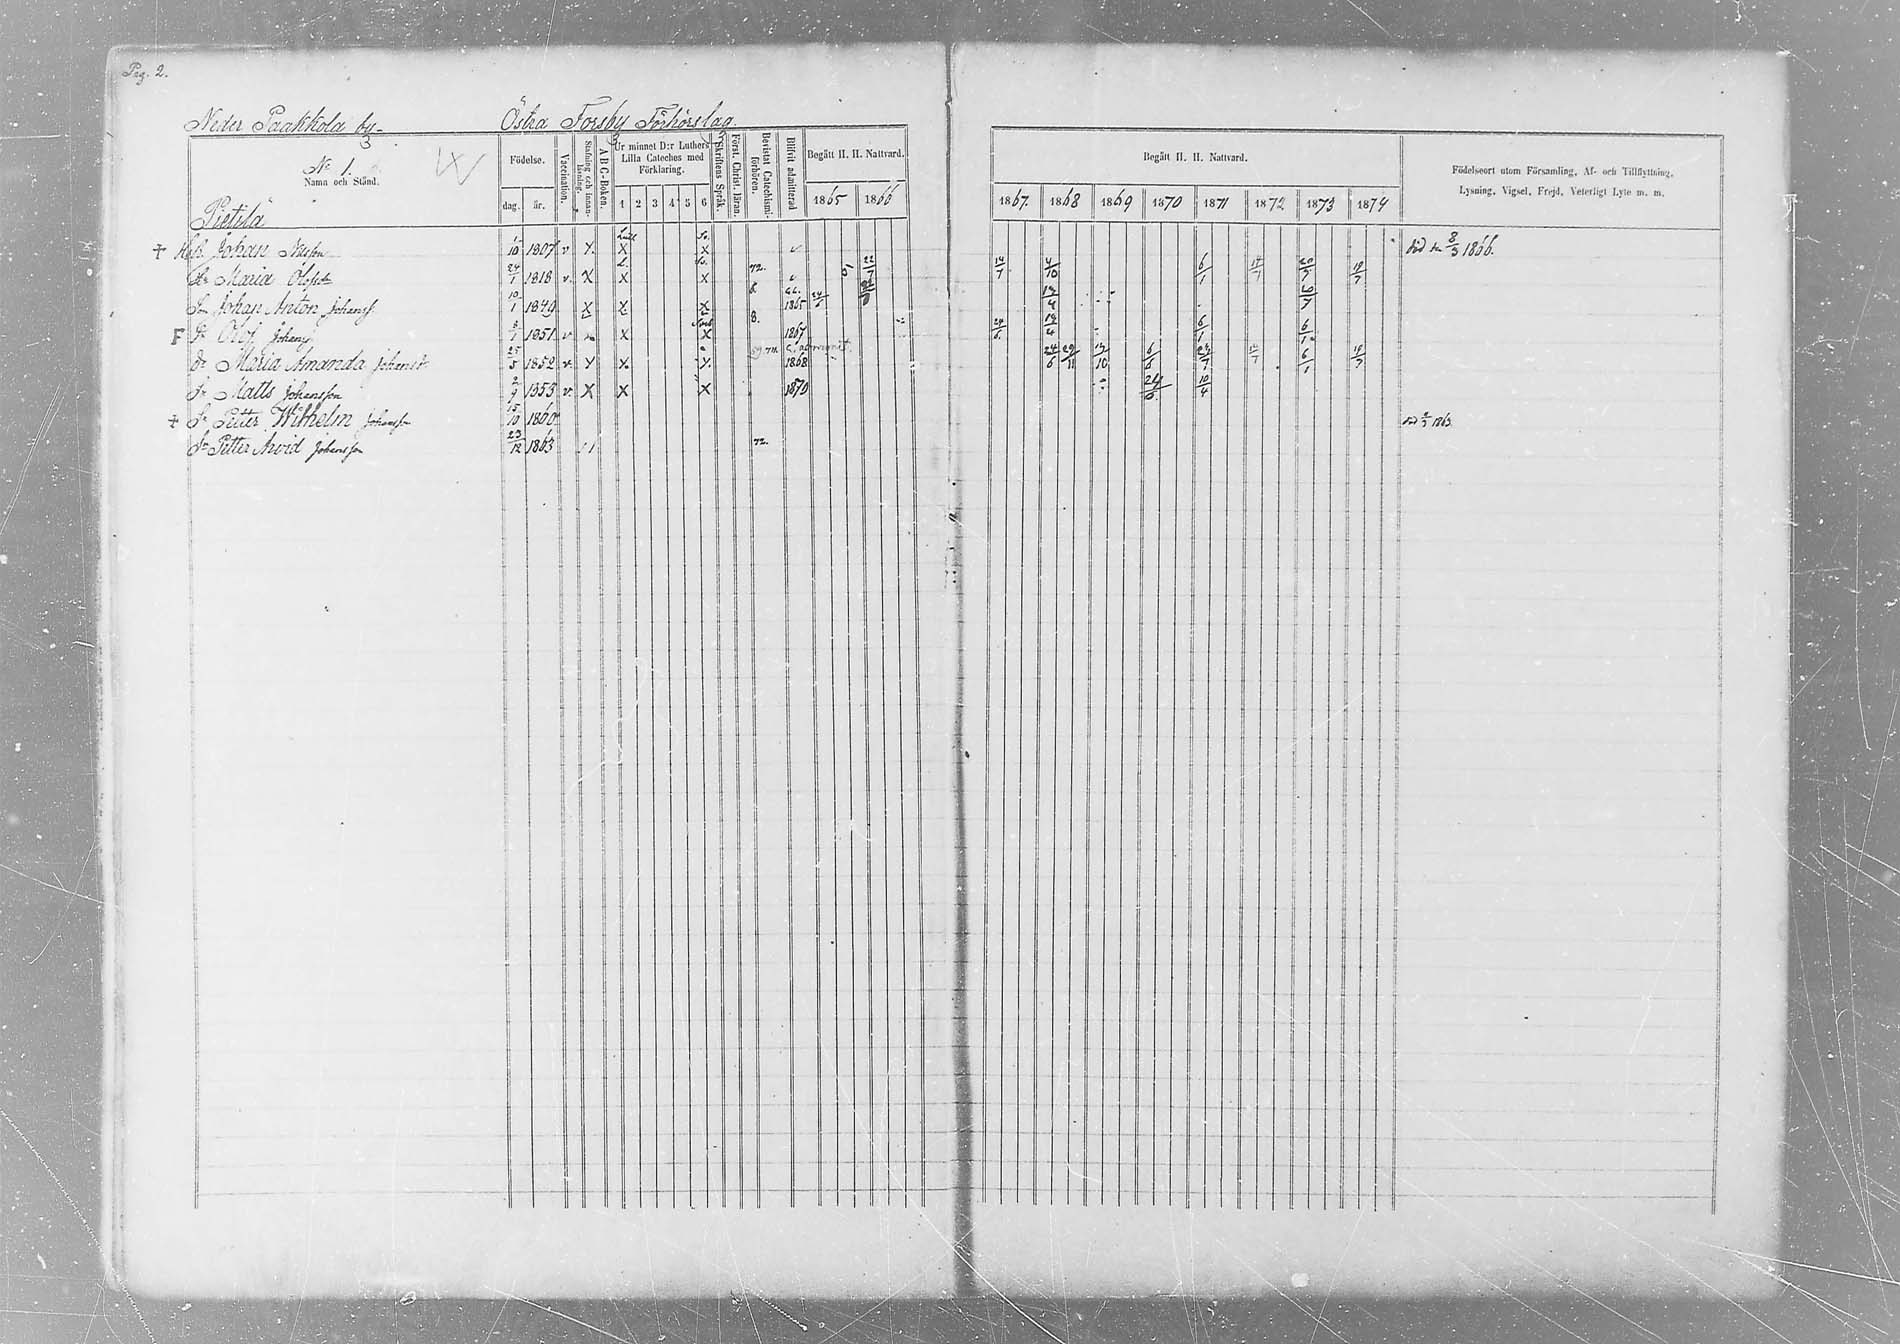 Pag. 2.
Neder Paakkola by Östra Forsby Förhörslag.
No 1.
Namn och Stånd.
Födelse.
dag. år.
Vaccination.
Stafning och Innanläsning.
A B C-Boken.
Ur minnet D:r Luthers Lilla Cateches med Förklaring.
1 2 3 4 5 6
Skriftens Språk.
Först. Christ. läran.
Bevistat Catechismi-förhören.
Blifvit admitterad
Begått H. H. Nattvard.
1865 1866
Begått H. H. Nattvard.
1867. 1868 1869 1870 1871 1872 1873 1874
Födelseort utom Församling, Af- och Tillflyttning,
Lysning, Vigsel, Frejd, Veterligt Lyte m. m.
Pietilä
Johan Nilsson 10 1807 v X X död den 8/3 1866.
Maria Olofsdr 24/7 1818 v. X X 72. 22/7 14/7 4/10 6/1 14/7 20/7 19/7
Son Johan Anton Johanss. 10/1 1849 X X 1865 24/6
F Sn Olof Johans 1/1 1851 v X X 8. 1867 24/6 19/4 6/1 6/1
Dr Maria Amanda Johansdr 25/5 1852 v. X 1868 24/6 29/11 6/6 23/7 6/1 19/7
Sn Matts Johansson 1853 v. X X X 1870 10/4
Sn Petter Wilhelm Johansson 15/10 1860 1863
Sn Petter Arvid Johansson 23/12 1863 72.